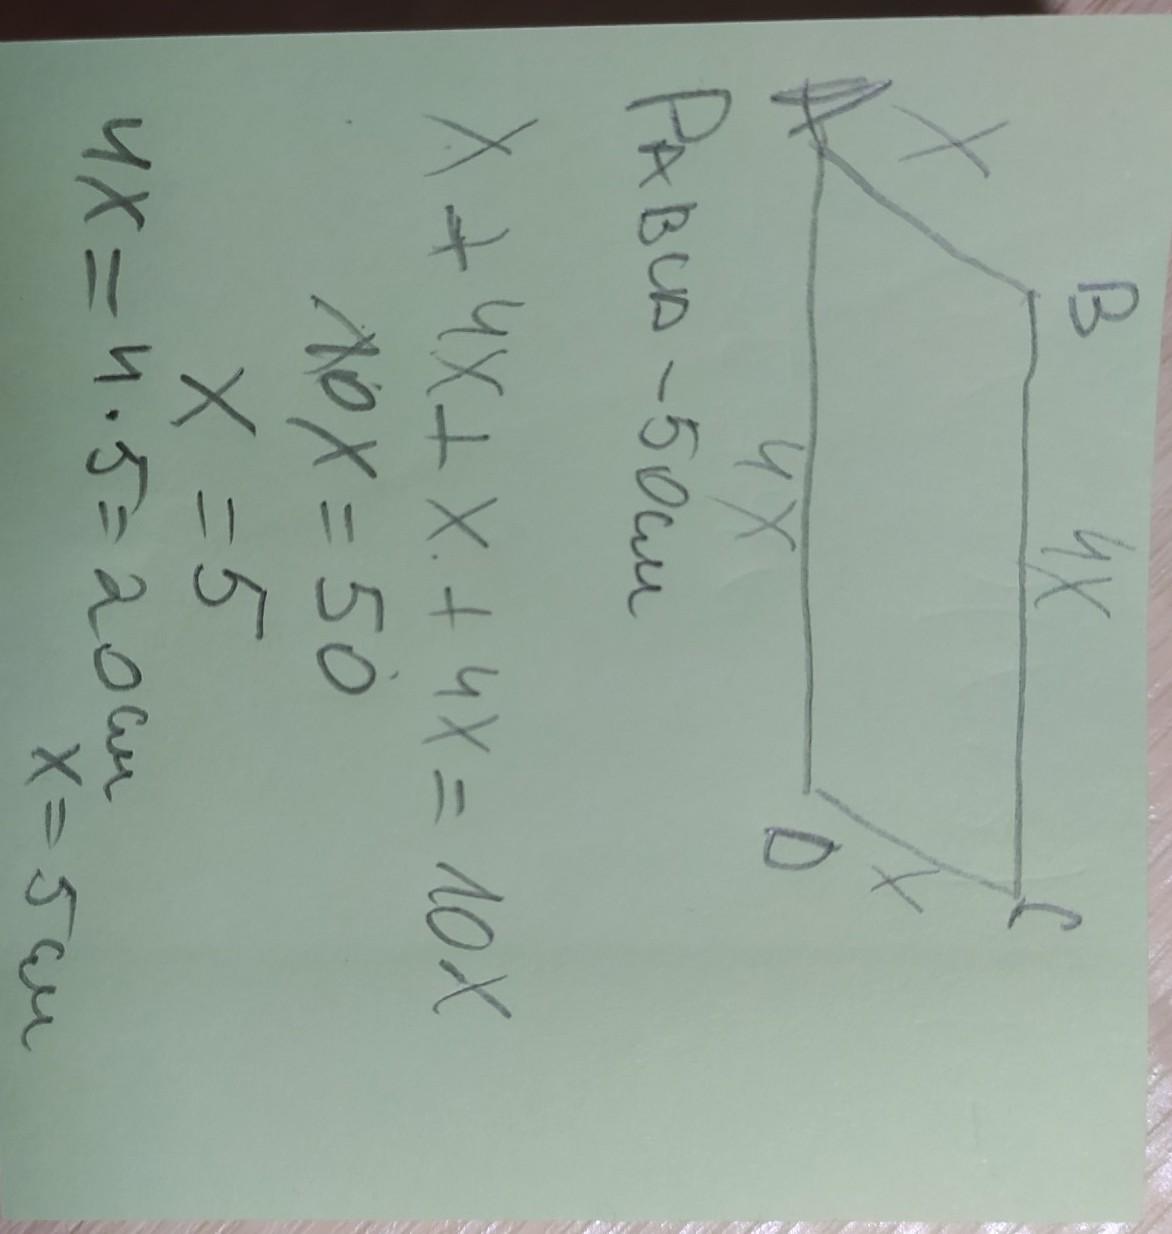 B
4x
C
x
A
4x
D
x
PABCD - 50см
x + 4x + x + 4x = 10x
10x = 50
x = 5
4x = 4 · 5 = 20см
x = 5см